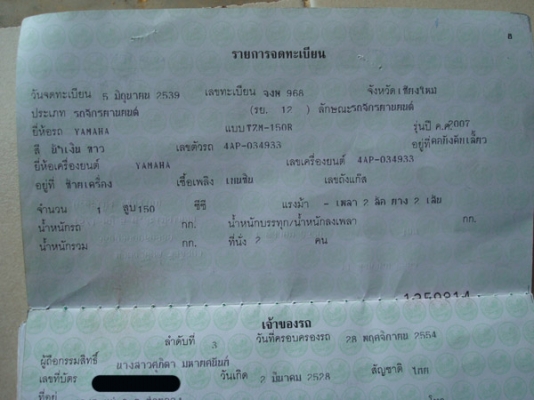 8
รายการจดทะเบียน
วันจดทะเบียน 5 มิถุนายน 2539 เลขทะเบียน 966 จังหวัด เชียงใหม่
ประเภท รถจักรยานยนต์ (รย. 12 ) ลักษณะ รถจักรยานยนต์
ยี่ห้อรถ YAMAHA แบบ TZM-150R รุ่นปี ค.ศ. 2007
สี น้ำเงิน ขาว เลขตัวรถ 4AP-034933 อยู่ที่ คอยึดคัดเลี้ยว
ยี่ห้อเครื่องยนต์ YAMAHA เลขเครื่องยนต์ 4AP-034933
อยู่ที่ ซ้ายเครื่อง เชื้อเพลิง เบนซิน เลขถังแก๊ส
จำนวน 1 สูบ 150 ซีซี แรงม้า - เพลา 2 ล้อ ยาง 2 เส้น
น้ำหนักรถ กก. น้ำหนักบรรทุก/น้ำหนักลงเพลา กก.
น้ำหนักรวม กก. ที่นั่ง 2 คน
เจ้าของรถ
ลำดับที่ 3 วันที่ครอบครองรถ 28 พฤศจิกายน 2554
ผู้ถือกรรมสิทธิ์ นางสาว
เลขที่บัตร วันเกิด 2 มีนาคม 2528 สัญชาติ ไทย
ที่อยู่